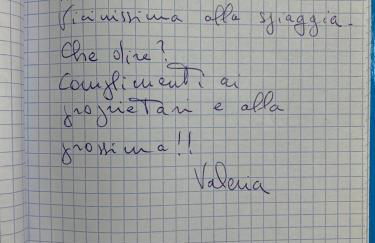 Vicinissima alla spiaggia.
Che dire?
Complimenti ai
proprietari e alla
prossima!!
Valeria